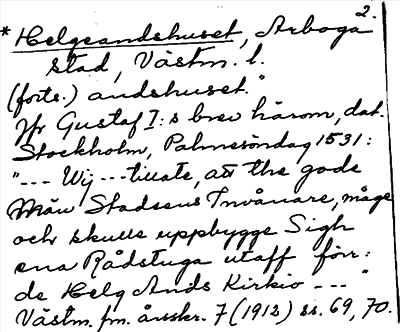 2.
* Helgeandshuset, Arboga
stad, Västm. l.
(forts.) andshuset."
Jfr Gustaf I:s brev härom, dat.
Stockholm, Palmesöndag 1531:
"--- Wij --- tillate, att the gode
Män Stadsens Invånare, måge
och skulle uppbygge Sigh
ena Rådstuga utaff förr:
de Helg Ands Kirkio --- "
Västm. fm. årsskr. 7 (1912) ss. 69, 70.